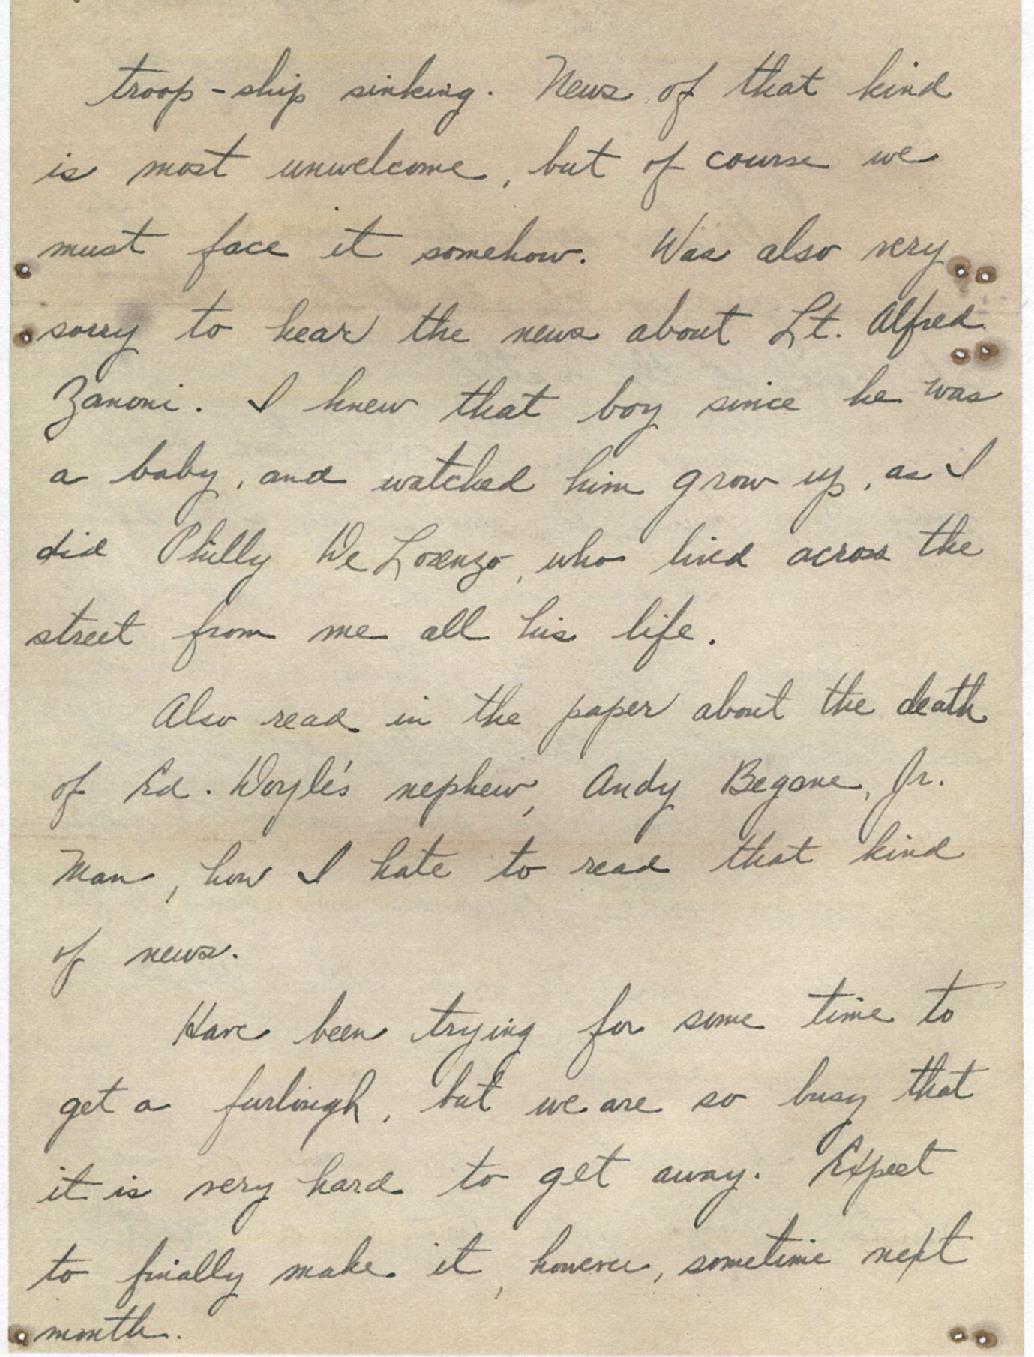 troop-ship sinking. News of that kind
is most unwelcome, but of course we
must face it somehow. Was also very
sorry to hear the news about Lt. Alfred
Zanoni. I knew that boy since he was
a baby, and watched him grow up, as I
did Philly De Lorenzo, who lived across the
street from me all his life.
Also read in the paper about the death
of Ed. Doyle's nephew, Andy Begane, Jr.
Man, how I hate to read that kind
of news.
Have been trying for some time to
get a furlough, but we are so busy that
it is very hard to get away. Expect
to finally make it, however, sometime next
month.